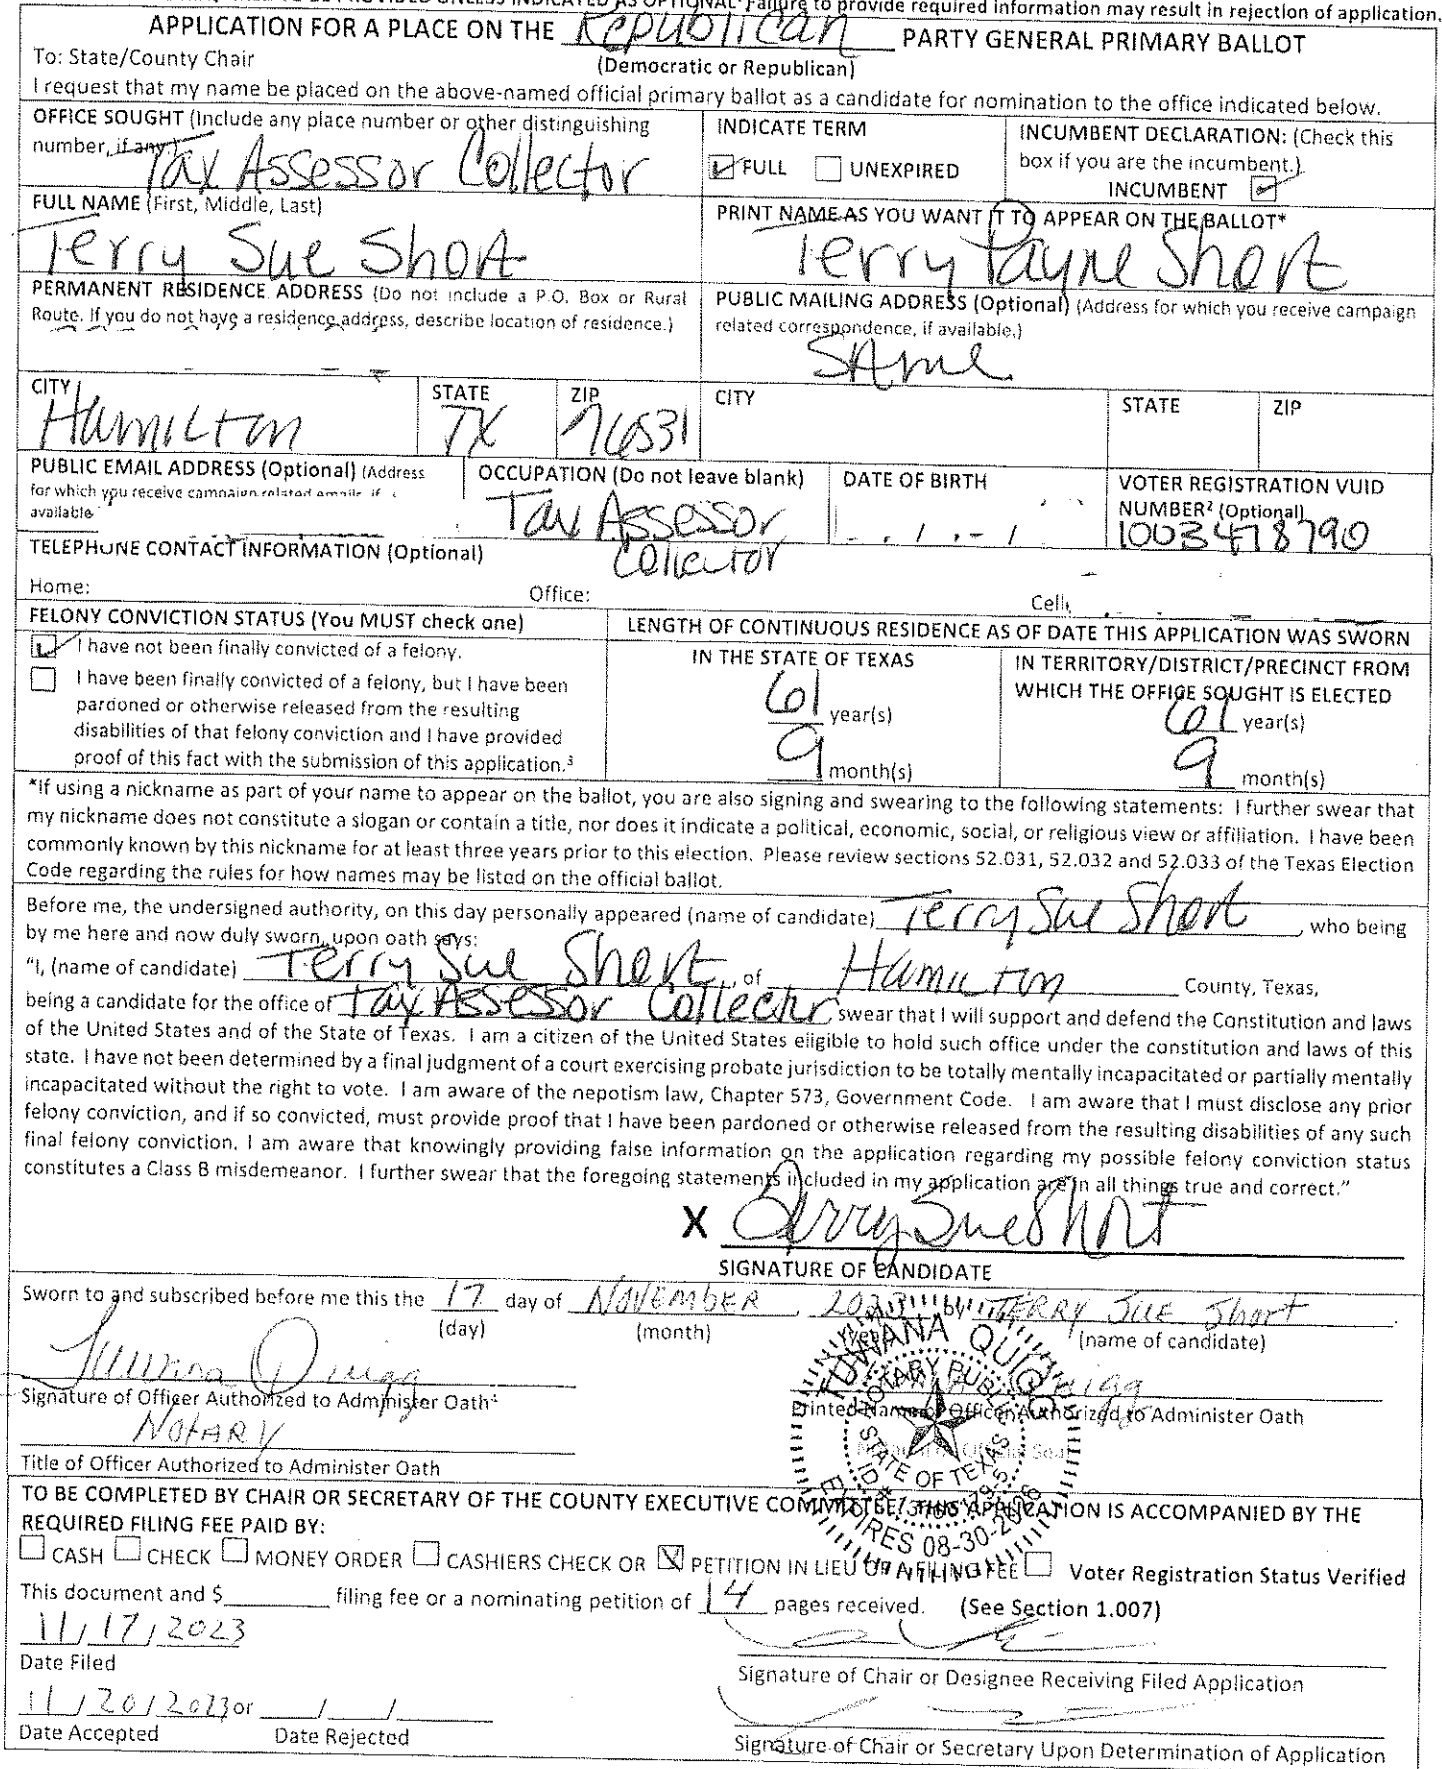 UNLESS INDICATED AS OPTIONAL¹ Failure to provide required information may result in rejection of application.
APPLICATION FOR A PLACE ON THE Republican PARTY GENERAL PRIMARY BALLOT
To: State/County Chair
(Democratic or Republican)
I request that my name be placed on the above-named official primary ballot as a candidate for nomination to the office indicated below.
OFFICE SOUGHT (Include any place number or other distinguishing number, if any.)
Tax Assessor Collector
INDICATE TERM
FULL UNEXPIRED
INCUMBENT DECLARATION: (Check this box if you are the incumbent.)
INCUMBENT
FULL NAME (First, Middle, Last)
Terry Sue Short
PRINT NAME AS YOU WANT IT TO APPEAR ON THE BALLOT*
Terry Payne Short
PERMANENT RESIDENCE ADDRESS (Do not include a P.O. Box or Rural
Route. If you do not have a residence address, describe location of residence.)
PUBLIC MAILING ADDRESS (Optional) (Address for which you receive campaign
related correspondence, if available.)
SAme
CITY
Hamilton
STATE
TX
ZIP
76531
CITY
STATE
ZIP
PUBLIC EMAIL ADDRESS (Optional) (Address
for which you receive campaign related emails, if
available
OCCUPATION (Do not leave blank)
Tax Assessor
Collector
DATE OF BIRTH
VOTER REGISTRATION VUID
NUMBER² (Optional)
1003478790
TELEPHONE CONTACT INFORMATION (Optional)
Home:
Office:
Cell:
FELONY CONVICTION STATUS (You MUST check one)
I have not been finally convicted of a felony.
I have been finally convicted of a felony, but I have been
pardoned or otherwise released from the resulting
disabilities of that felony conviction and I have provided
proof of this fact with the submission of this application.³
LENGTH OF CONTINUOUS RESIDENCE AS OF DATE THIS APPLICATION WAS SWORN
IN THE STATE OF TEXAS
61 year(s)
9 month(s)
IN TERRITORY/DISTRICT/PRECINCT FROM
WHICH THE OFFICE SOUGHT IS ELECTED
61 year(s)
9 month(s)
*If using a nickname as part of your name to appear on the ballot, you are also signing and swearing to the following statements: I further swear that
my nickname does not constitute a slogan or contain a title, nor does it indicate a political, economic, social, or religious view or affiliation. I have been
commonly known by this nickname for at least three years prior to this election. Please review sections 52.031, 52.032 and 52.033 of the Texas Election
Code regarding the rules for how names may be listed on the official ballot.
Before me, the undersigned authority, on this day personally appeared (name of candidate) Terry Sue Short, who being
by me here and now duly sworn, upon oath says:
"I, (name of candidate) Terry Sue Short, of Hamilton County, Texas,
being a candidate for the office of Tax Assessor Collectr, swear that I will support and defend the Constitution and laws
of the United States and of the State of Texas. I am a citizen of the United States eligible to hold such office under the constitution and laws of this
state. I have not been determined by a final judgment of a court exercising probate jurisdiction to be totally mentally incapacitated or partially mentally
incapacitated without the right to vote. I am aware of the nepotism law, Chapter 573, Government Code. I am aware that I must disclose any prior
felony conviction, and if so convicted, must provide proof that I have been pardoned or otherwise released from the resulting disabilities of any such
final felony conviction. I am aware that knowingly providing false information on the application regarding my possible felony conviction status
constitutes a Class B misdemeanor. I further swear that the foregoing statements included in my application are in all things true and correct."
X Terry Sue Short
SIGNATURE OF CANDIDATE
Sworn to and subscribed before me this the 17 day of NOVEMBER, 2023 by TERRY SUE Short
(day) (month) (year) (name of candidate)
Signature of Officer Authorized to Administer Oath⁴
Printed Name of Officer Authorized to Administer Oath
NOTARY
Title of Officer Authorized to Administer Oath
QUIGG
NOTARY PUBLIC
STATE OF TEXAS
EXPIRES 08-30-2026
TO BE COMPLETED BY CHAIR OR SECRETARY OF THE COUNTY EXECUTIVE COMMITTEE: THIS APPLICATION IS ACCOMPANIED BY THE
REQUIRED FILING FEE PAID BY:
CASH CHECK MONEY ORDER CASHIERS CHECK OR PETITION IN LIEU OF A FILING FEE Voter Registration Status Verified
This document and $ filing fee or a nominating petition of 14 pages received. (See Section 1.007)
11/17/2023
Date Filed
Signature of Chair or Designee Receiving Filed Application
11/20/2023 or / /
Date Accepted Date Rejected
Signature of Chair or Secretary Upon Determination of Application